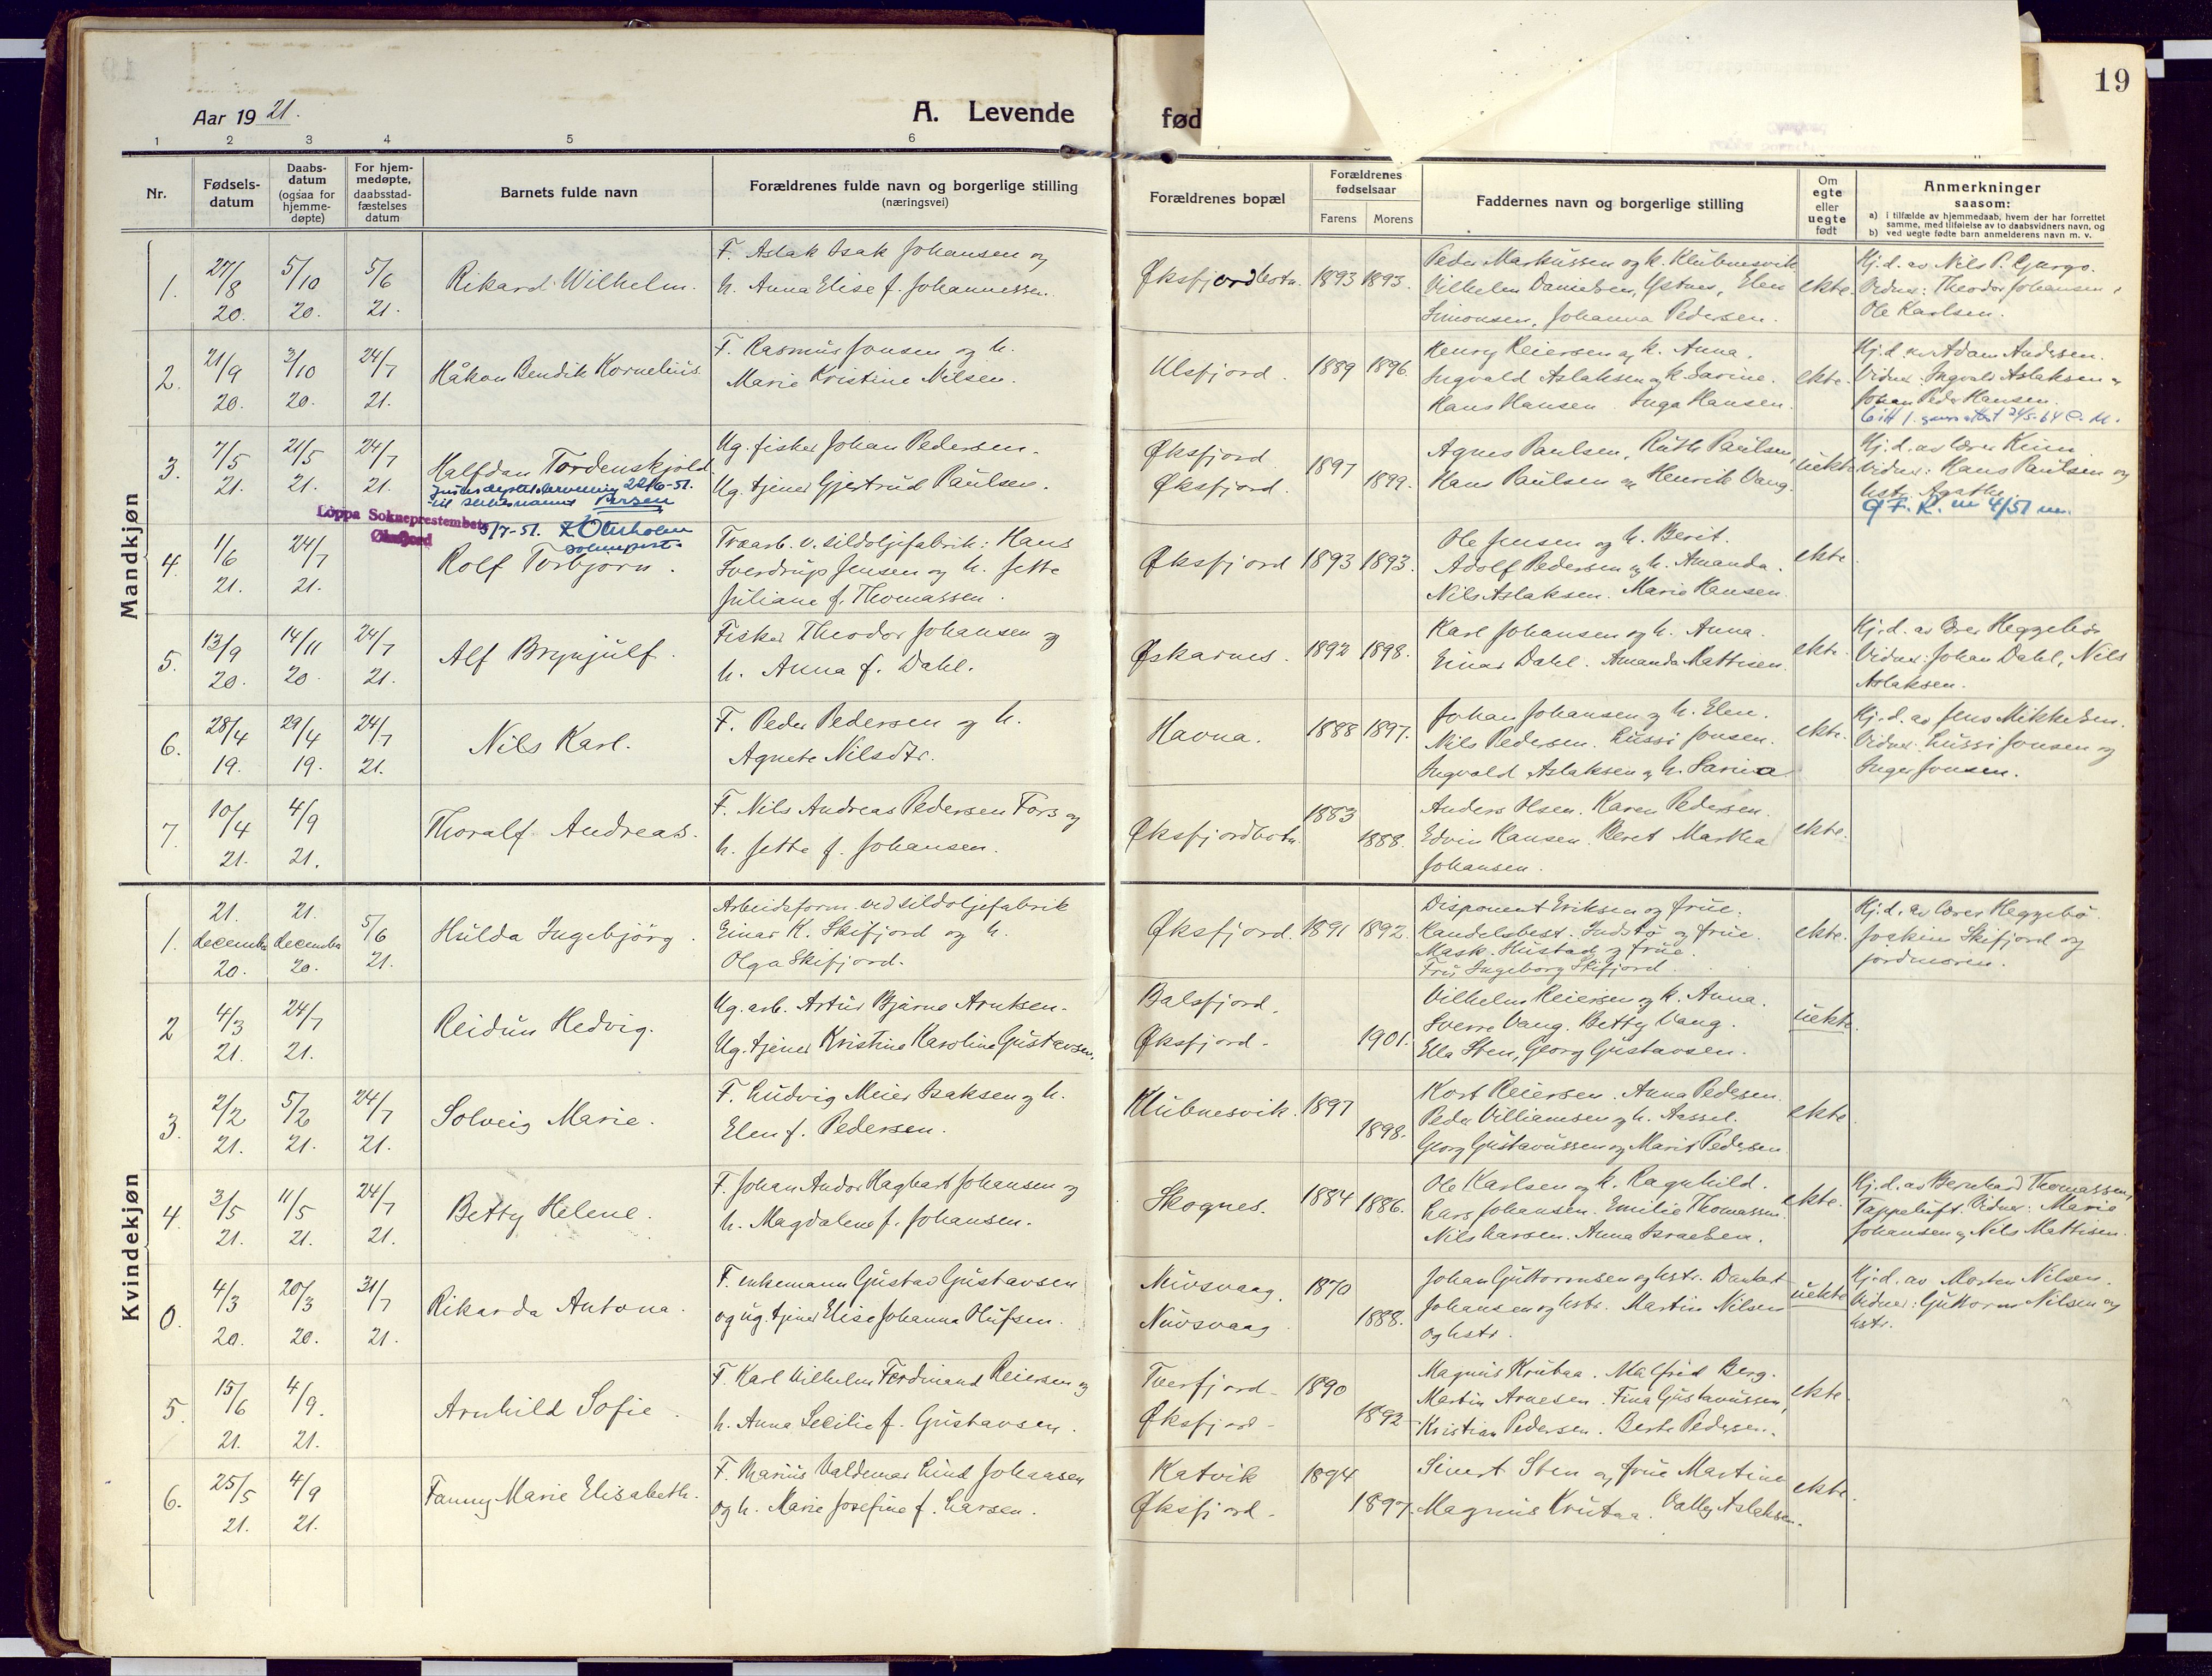 19
Aar 1921.
A. Levende
fød
1 2 3 4 5 6
Nr.
Fødsels-
datum
Daabs-
datum
(ogsaa for
hjemme-
døpte)
For hjem-
medøpte,
daabsstad-
fæstelses
datum
Barnets fulde navn
Forældrenes fulde navn og borgerlige stilling
(næringsvei)
Forældrenes bopæl
Forældrenes
fødselsaar
Farens Morens
Faddernes navn og borgerlige stilling
Om
egte
eller
uegte
født
Anmerkninger
saasom:
a) i tilfælde av hjemmedaab, hvem der har forrettet
samme, med tilføielse av to daabsvidners navn, og
b) ved uegte fødte barn anmelderens navn m. v.
Mandkjøn
1. 27/8 20. 5/10 20. 5/6 21.
Rikard Wilhelm.
F. Aslak Isak Johansen og
h. Anna Elise f. Johannessen.
Øksfjordbotn. 1893 1893.
Peder Markussen og h. Klubnesvik
Vilhelm Danielsen, Ystnes, Elen
Simonsen, Johanna Pedersen.
ekte.
Hj. d. av Nils P. Gargo.
Vidner: Theodor Johansen,
Ole Karlsen.
2. 21/9 20. 3/10 20. 24/7 21.
Håkon Bendik Kornelius.
F. Rasmus Jonsen og h.
Marie Kristine Nilsen.
Ulsfjord. 1889 1896.
Henry Reiersen og h. Anna.
Ingvald Aslaksen og h. Sarine.
Hans Hansen. Inga Hansen.
ekte.
Hj. d. av Adam Andersen.
Vidner: Ingvald Aslaksen og
Johan Peder Hansen.
3. 7/5 21. 21/5 21. 24/7 21.
Halfdan Tordenskjold
22/6-51.
til slektsnavnet Persen
Loppa Sokneprestembete
Øksfjord
5/7-51.
sokneprest.
Ug. fisker Johan Pedersen.
Ug. tjener Gjertrud Paulsen.
Øksfjord. 1897
Øksfjord. 1899.
Agnes Paulsen, Ruth Paulsen,
Hans Paulsen og Henrik Vang.
uekte
Hj. d. av lærer Keim.
Vidner: Hans Paulsen og
hstr. Agathe.
4/51
4. 1/6 21. 24/7 21.
Rolf Torbjørn.
Træarb. v. sildoljefabrik: Hans
Sverdrup Jensen og h. Jette
Juliane f. Thomassen.
Øksfjord 1893 1893.
Ole Jensen og h. Berit.
Adolf Pedersen og h. Amanda.
Nils Aslaksen. Marie Hansen.
ekte.
5. 13/9 20. 14/11 20. 24/7 21.
Alf Brynjulf.
Fisker Theodor Johansen og
h. Anna f. Dahl.
Øskarnes. 1892 1898.
Karl Johansen og h. Anna.
Einar Dahl. Amanda Mattisen.
ekte.
Hj. d. av lærer Heggebø
Vidner: Johan Dahl, Nils
Aslaksen.
6. 28/4 19. 29/4 19. 24/7 21.
Nils Karl.
F. Peder Pedersen og h.
Agnete Nilsdtr.
Havna. 1888 1897.
Johan Johansen og h. Elen.
Nils Pedersen. Lussi Jonsen.
Ingvald Aslaksen og h. Sarine
ekte.
Hj. d. av Jens Mikkelsen.
Vidner: Lussi Jonsen og
Inger Jonsen.
7. 10/4 21. 4/9 21.
Thoralf Andreas.
F. Nils Andreas Pedersen Fors og
h. Jette f. Johansen.
Øksfjordbotn. 1883 1888.
Anders Olsen. Karen Pedersen.
Edvin Hansen. Beret Martha
Johansen.
ekte.
Kvindekjøn
1. 21. december 20. 21. december 20. 5/6 21.
Hulda Ingebjörg.
Arbeidsform. ved sildoljefabrik
Einar K. Skifjord og h.
Olga Skifjord.
Øksfjord. 1891 1892.
Disponent Eriksen og frue.
Handelsbest. Indstø og frue.
Mask. Hustad og frue.
Fru Ingeborg Skifjord.
ekte.
Hj. d. av lærer Heggebø.
Joakim Skifjord og
jordmoren.
2 4/3 21. 24/7 21.
Reidun Hedvig.
Ug. arb. Artur Bjarne Arntsen.
Ug. tjener Kristine Karoline Gustavsen.
Balsfjord.
Øksfjord. 1901.
Vilhelm Reiersen og h. Anna.
Sverre Vang. Betty Vang.
Ella Sten, Georg Gustavsen.
uekte.
3. 2/2 21. 5/2 21. 24/7 21.
Solveig Marie.
F. Ludvig Meier Isaksen og h.
Elen f. Pedersen.
Klubnesvik. 1897 1898.
Kort Reiersen. Anna Pedersen.
Peder Villiamsen og h. Aassel.
Georg Gustavussen og Marit Pedersen
ekte.
4. 3/5 21. 11/5 21. 24/7 21.
Betty Helene.
F. Johan Andor Hagbart Johansen og
h. Magdalene f. Johansen.
Skognes. 1884 1886.
Ole Karlsen og h. Ragnhild.
Lars Johansen. Emilie Thomassen.
Nils Larsen. Anna Israelsen.
ekte.
Hj. d. av Bernhard Thomassen,
Tappeluft. Vidner: Marie
Johansen og Nils Mattisen.
0. 4/3 20. 20/3 20. 31/7 21.
Rikarda Antona.
F. enkemann Gustav Gustavsen
og ug. tjener Elise Johanna Olufsen.
Nuvsvaag. 1870
Nuvsvaag. 1888.
Johan Guttormsen og hstr. Dankert
Johansen og hstr. Martin Nilsen
og hstr.
uekte
Hj. d. av Morten Nilsen.
Vidner: Guttorm Nilsen og
hstr.
5. 15/6 21. 4/9. 21.
Arnhild Sofie.
F. Karl Vilhelm Ferdinand Reiersen og
h. Anna Secilie f. Gustavsen.
Tverfjord- 1890
Øksfjord- 1892
Magnus Krutaa. Malfrid Berg.
Martin Arnesen. Fina Gustavussen,
Kristian Pedersen. Berte Pedersen.
ekte.
6. 25/5 21. 4/9 21.
Fanny Marie Elisabeth.
F. Marius Valdemar Lind Johansen
og h. Marie Josefine f. Larsen.
Katvik 1894
Øksfjord- 1897.
Sivert Sten og frue Martine
Magnus Krutaa. Vally Aslaksen.
ekte.